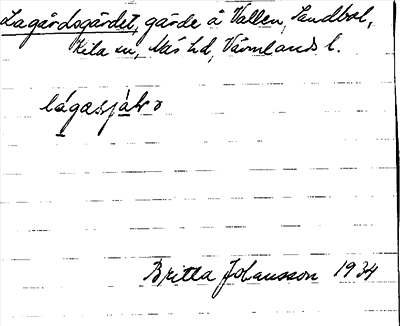 Lagårdsgärdet, gärde å Vallen, Sandbol,
Kila sn, Näs hd, Värmlands l.
Britta Johansson 1934